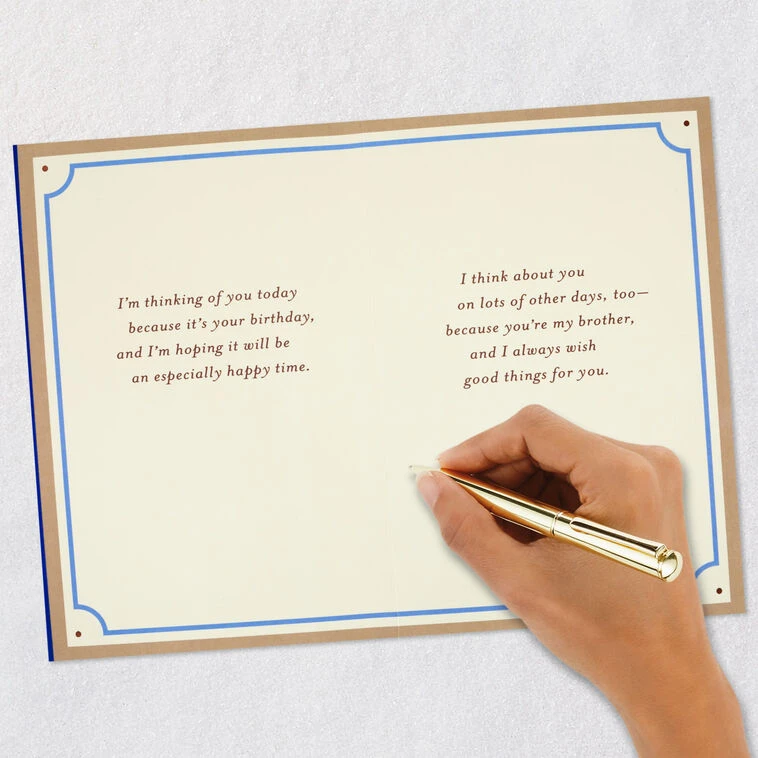 I'm thinking of you today
because it's your birthday,
and I'm hoping it will be
an especially happy time.
I think about you
on lots of other days, too—
because you're my brother,
and I always wish
good things for you.